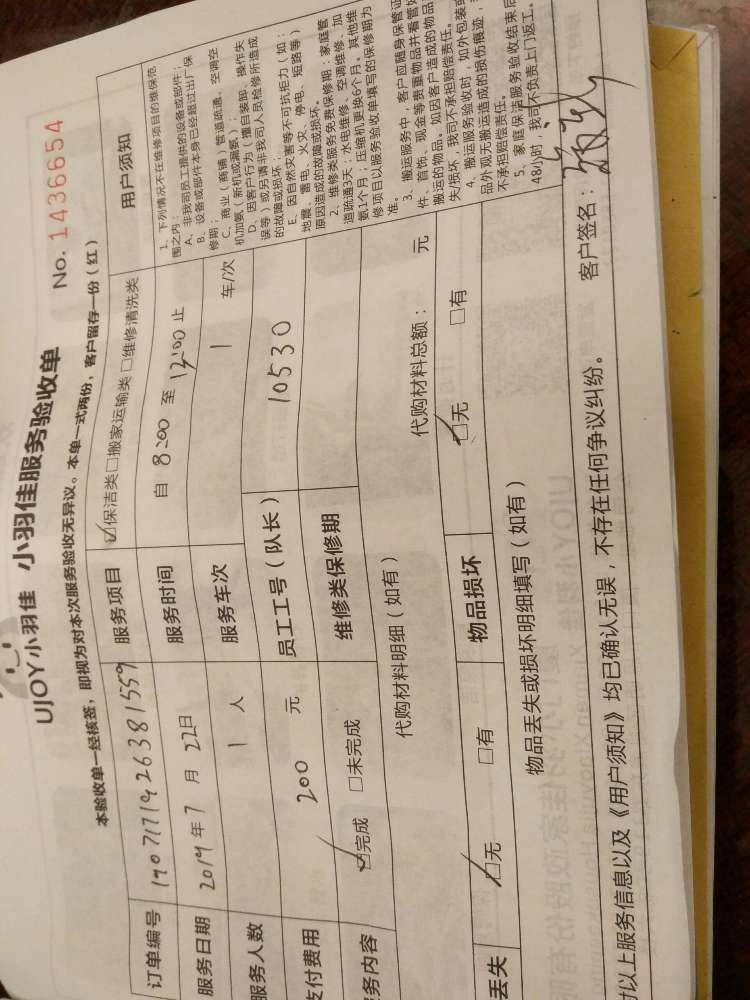 UJOY小羽佳 小羽佳服务验收单
No. 1436654
本验收单一经核签，即视为对本次服务验收无异议。本单一式两份，客户留存一份（红）
订单编号 190717192638 1559
服务项目 ☑保洁类□搬家运输类 □维修清洗类
用户须知
服务日期 2019 年 7 月 22日
服务时间 自 8:00 至 12:00 止
服务人数 1 人
服务车次 1 车/次
支付费用 200 元
员工工号（队长） 10530
务内容 ☑完成 □未完成
维修类保修期
代购材料明细（如有）
代购材料总额： 元
丢失 ☑无 □有
物品损坏 ☑无 □有
物品丢失或损坏明细填写（如有）
1、下列情况不在维修项目的维保范
围之内：
A、非我司员工提供的设备或部件；
B、设备或部件本身已经超过出厂保
修期；
C、商业（商铺）管道疏通、空调空
机加氨（新机或漏氨）；
D、因客户行为（擅自装卸、操作失
误等）或另请非我司人员检修所造成
的故障或损坏；
E、因自然灾害等不可抗拒力（如：
地震、雷电、火灾、停电、短路等）
原因造成的故障或损坏。
2、维修类服务免费保修期：家庭管
道疏通3天；水电维修、空调维修、加
氨1个月；压缩机更换6个月。其他维
修项目以服务验收单填写的保修期为
准。
3、搬运服务中，客户应随身保管证
件、首饰、现金等贵重物品并看管好
搬运的物品。如因客户造成的物品
失/损坏，我司不承担赔偿责任。
4、搬运服务验收时，如外包装或
品外观无搬运造成的损伤痕迹，
不承担赔偿责任。
5、家庭保洁服务验收结束后
48小时，我司不负责上门返工。
对以上服务信息以及《用户须知》均已确认无误，不存在任何争议纠纷。
客户签名：